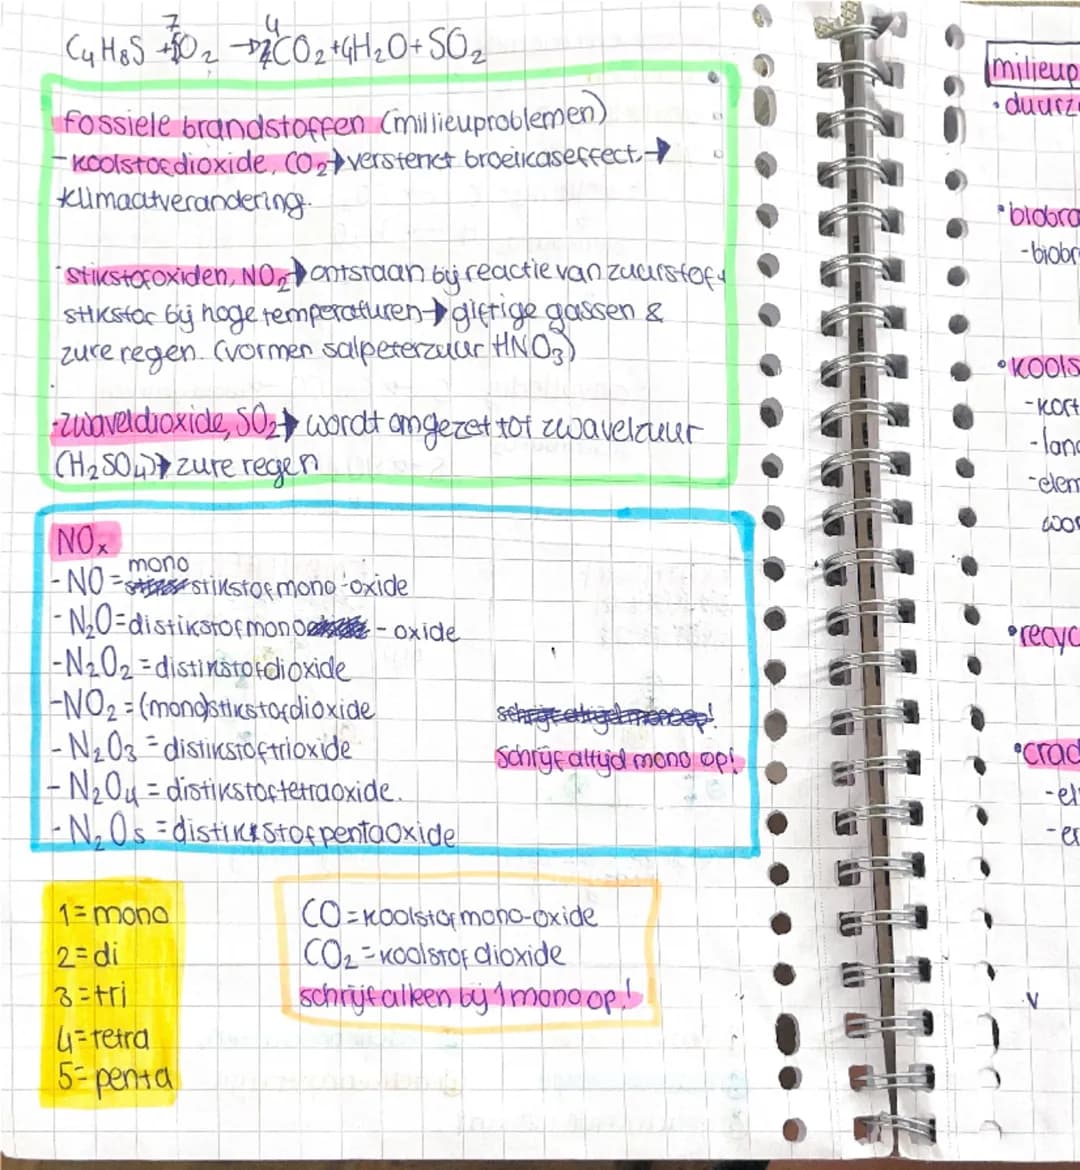 C₄H₈S + 7O₂ → 4CO₂ + 4H₂O + SO₂
fossiele brandstoffen (millieuproblemen)
- koolstofdioxide, CO₂ → versterkt broeikaseffect →
klimaatverandering.
· stikstofoxiden, NO₂ → ontstaan bij reactie van zuurstof +
stikstof bij hoge temperaturen → giftige gassen &
zure regen. (vormen salpeterzuur HNO₃)
· zwaveldioxide, SO₂ → wordt omgezet tot zwavelzuur
(H₂SO₄) → zure regen
NOₓ
- NO = mono stikstofmono-oxide
- N₂O = distikstofmono - oxide
- N₂O₂ = distikstofdioxide
- NO₂ = (mono)stikstofdioxide
- N₂O₃ = distikstoftrioxide
schrijf altijd mono op!
- N₂O₄ = distikstoftetraoxide.
- N₂O₅ = distikstofpentaoxide
1 = mono
2 = di
3 = tri
4 = tetra
5 = penta
CO = koolstofmono-oxide
CO₂ = koolstofdioxide
schrijf alleen bij 1 mono op!
milieup
· duurz
· biobra
- biobr
· kools
- kort
- lang
- elem
wor
· recyc
· crac
- el
- er
v